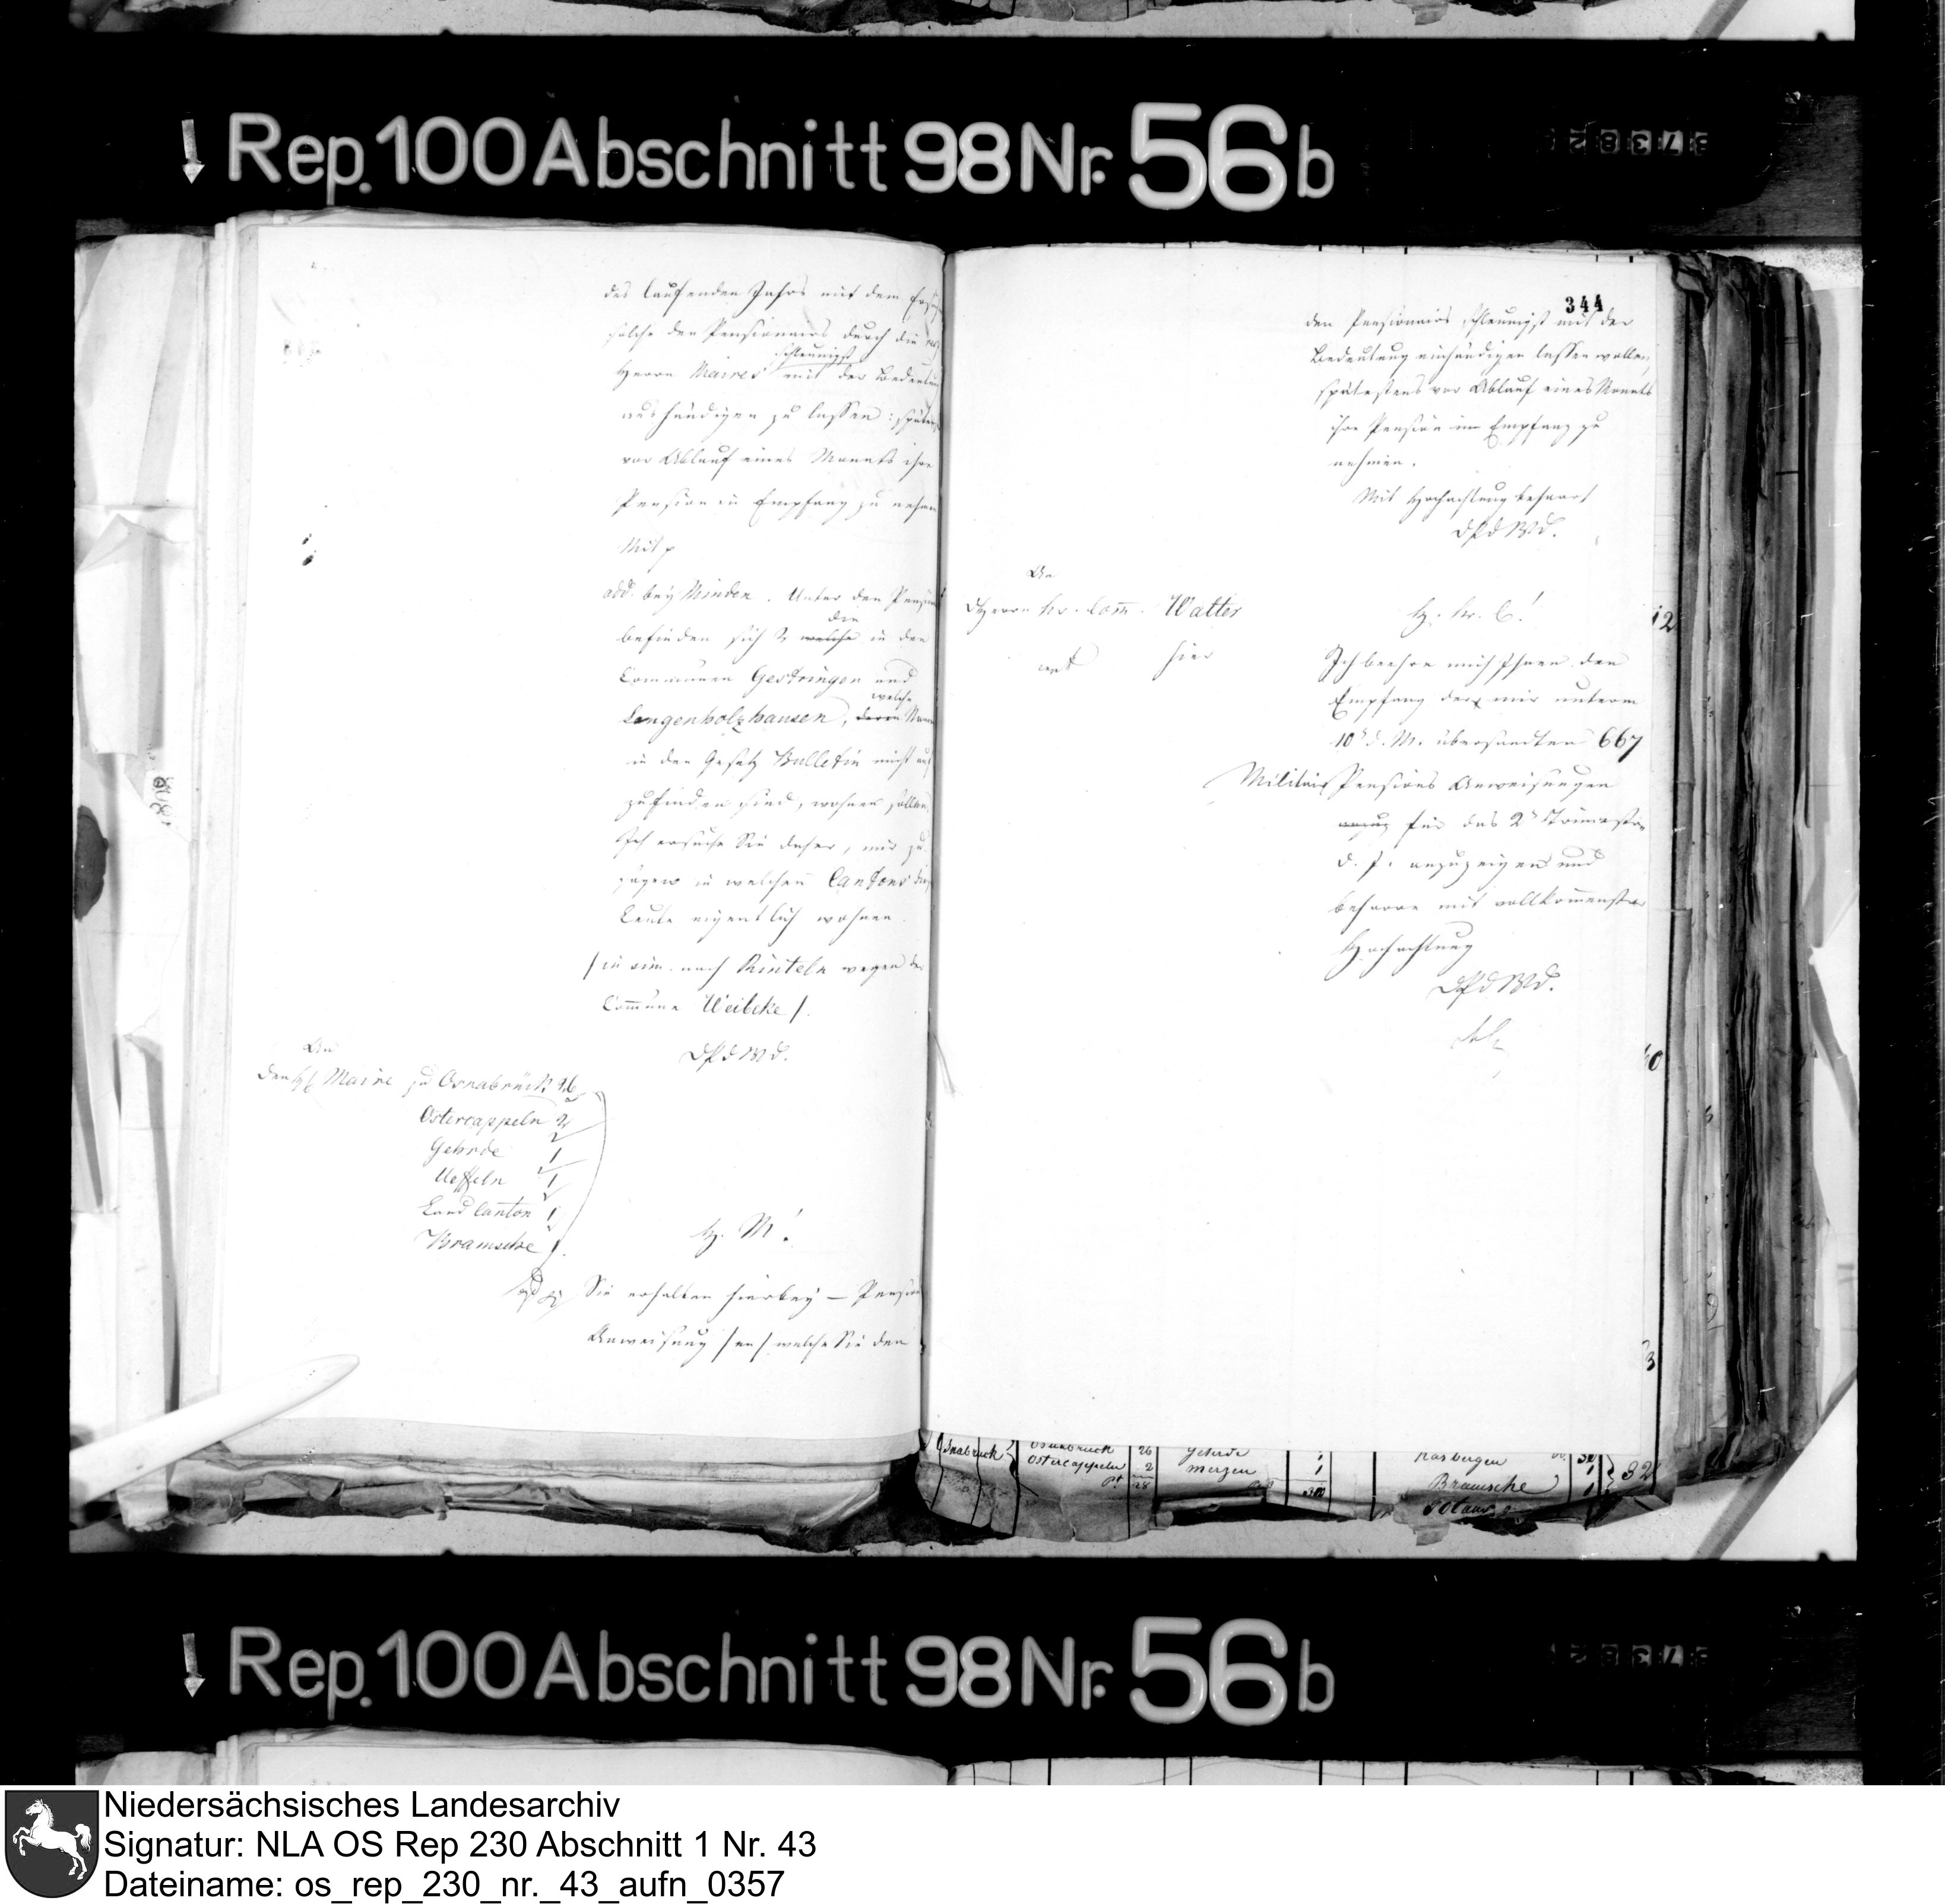 Rep. 100 Abschnitt 98 Nr. 56 b
des laufenden Jahrs mit dem
solche den Pensionairs durch die
schleunigst
Herrn Maires mit der Bedeutung
aushändigen zu lassen: späte
vor Ablauf eines Monats ihre
Pension in Empfang zu nehmen
Mit p
add. bey Minden. Unter den Pension
die
befinden sich 2 welche in den
Communen Gestringen und
welche
Langenholzhausen, deren
in den Gesetz Bulletin nicht auf
zufinden sind, wohnen sollen.
Ich ersuche Sie daher, mir
in welchem Cantons
Leute eigentlich wohnen.
/in sim. nach Rinteln wegen der
Com̄une Weibeke/.
DPdWD.
An
den H. Maire zu Osnabrück 26
Ostercappeln 2
Gehrde 1
Ueffeln 1
Land Canton 1
Bramsche 1.
H. M!
Sie erhalten hierbey — Pension
Anweisung/en/ welche Sie den
344
den Pensionairs schleunigst mit der
Bedeutung einhändigen lassen wollen,
spätestens vor Ablauf eines Monats
ihre Pension in Empfang zu
nehmen.
Mit Hochachtung beharrt
DPdWD.
An
d Herrn Kr. Com̄. Walter
hier
H. Kr. C!
Ich beehre mich Ihnen den
Empfang der mir unterm
10t d. M. übersandten 667
Militair Pensions Anweisungen
für das 2t Trimester
d. J. anzuzeigen und
beharre mit vollkom̄enster
Hochachtung
DPdWD.
12
Osnabrück
Osnabrück 26
Ostercappeln 2
28
Gehrde 1
Merzen 1
300
Bramsche 1
32
Rep. 100 Abschnitt 98 Nr. 56 b
Niedersächsisches Landesarchiv
Signatur: NLA OS Rep 230 Abschnitt 1 Nr. 43
Dateiname: os_rep_230_nr._43_aufn_0357